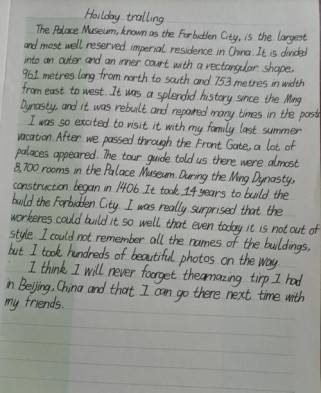 Hoilday tralling
The Palace Museum, known as the Forbidden City, is the largest
and most well reserved imperial residence in China. It is divided
into an outer and an inner court with a rectangular shape.
961 metres long from north to south and 753 metres in width
from east to west. It was a splendid history since the Ming
Dynasty, and it was rebuilt and repaired many times in the past.
I was so excited to visit it with my family last summer
vacation. After we passed through the Front Gate, a lot of
palaces appeared. The tour guide told us there were almost
8,700 rooms in the Palace Museum. During the Ming Dynasty,
construction began in 1406. It took 14 years to build the
build the Forbidden City. I was really surprised that the
workeres could build it so well, that even today it is not out of
style. I could not remember all the names of the buildings,
but I took hundreds of beautiful photos on the way.
I think I will never foorget theamazing tirp I had
in Beijing, China and that I can go there next time with
my friends.